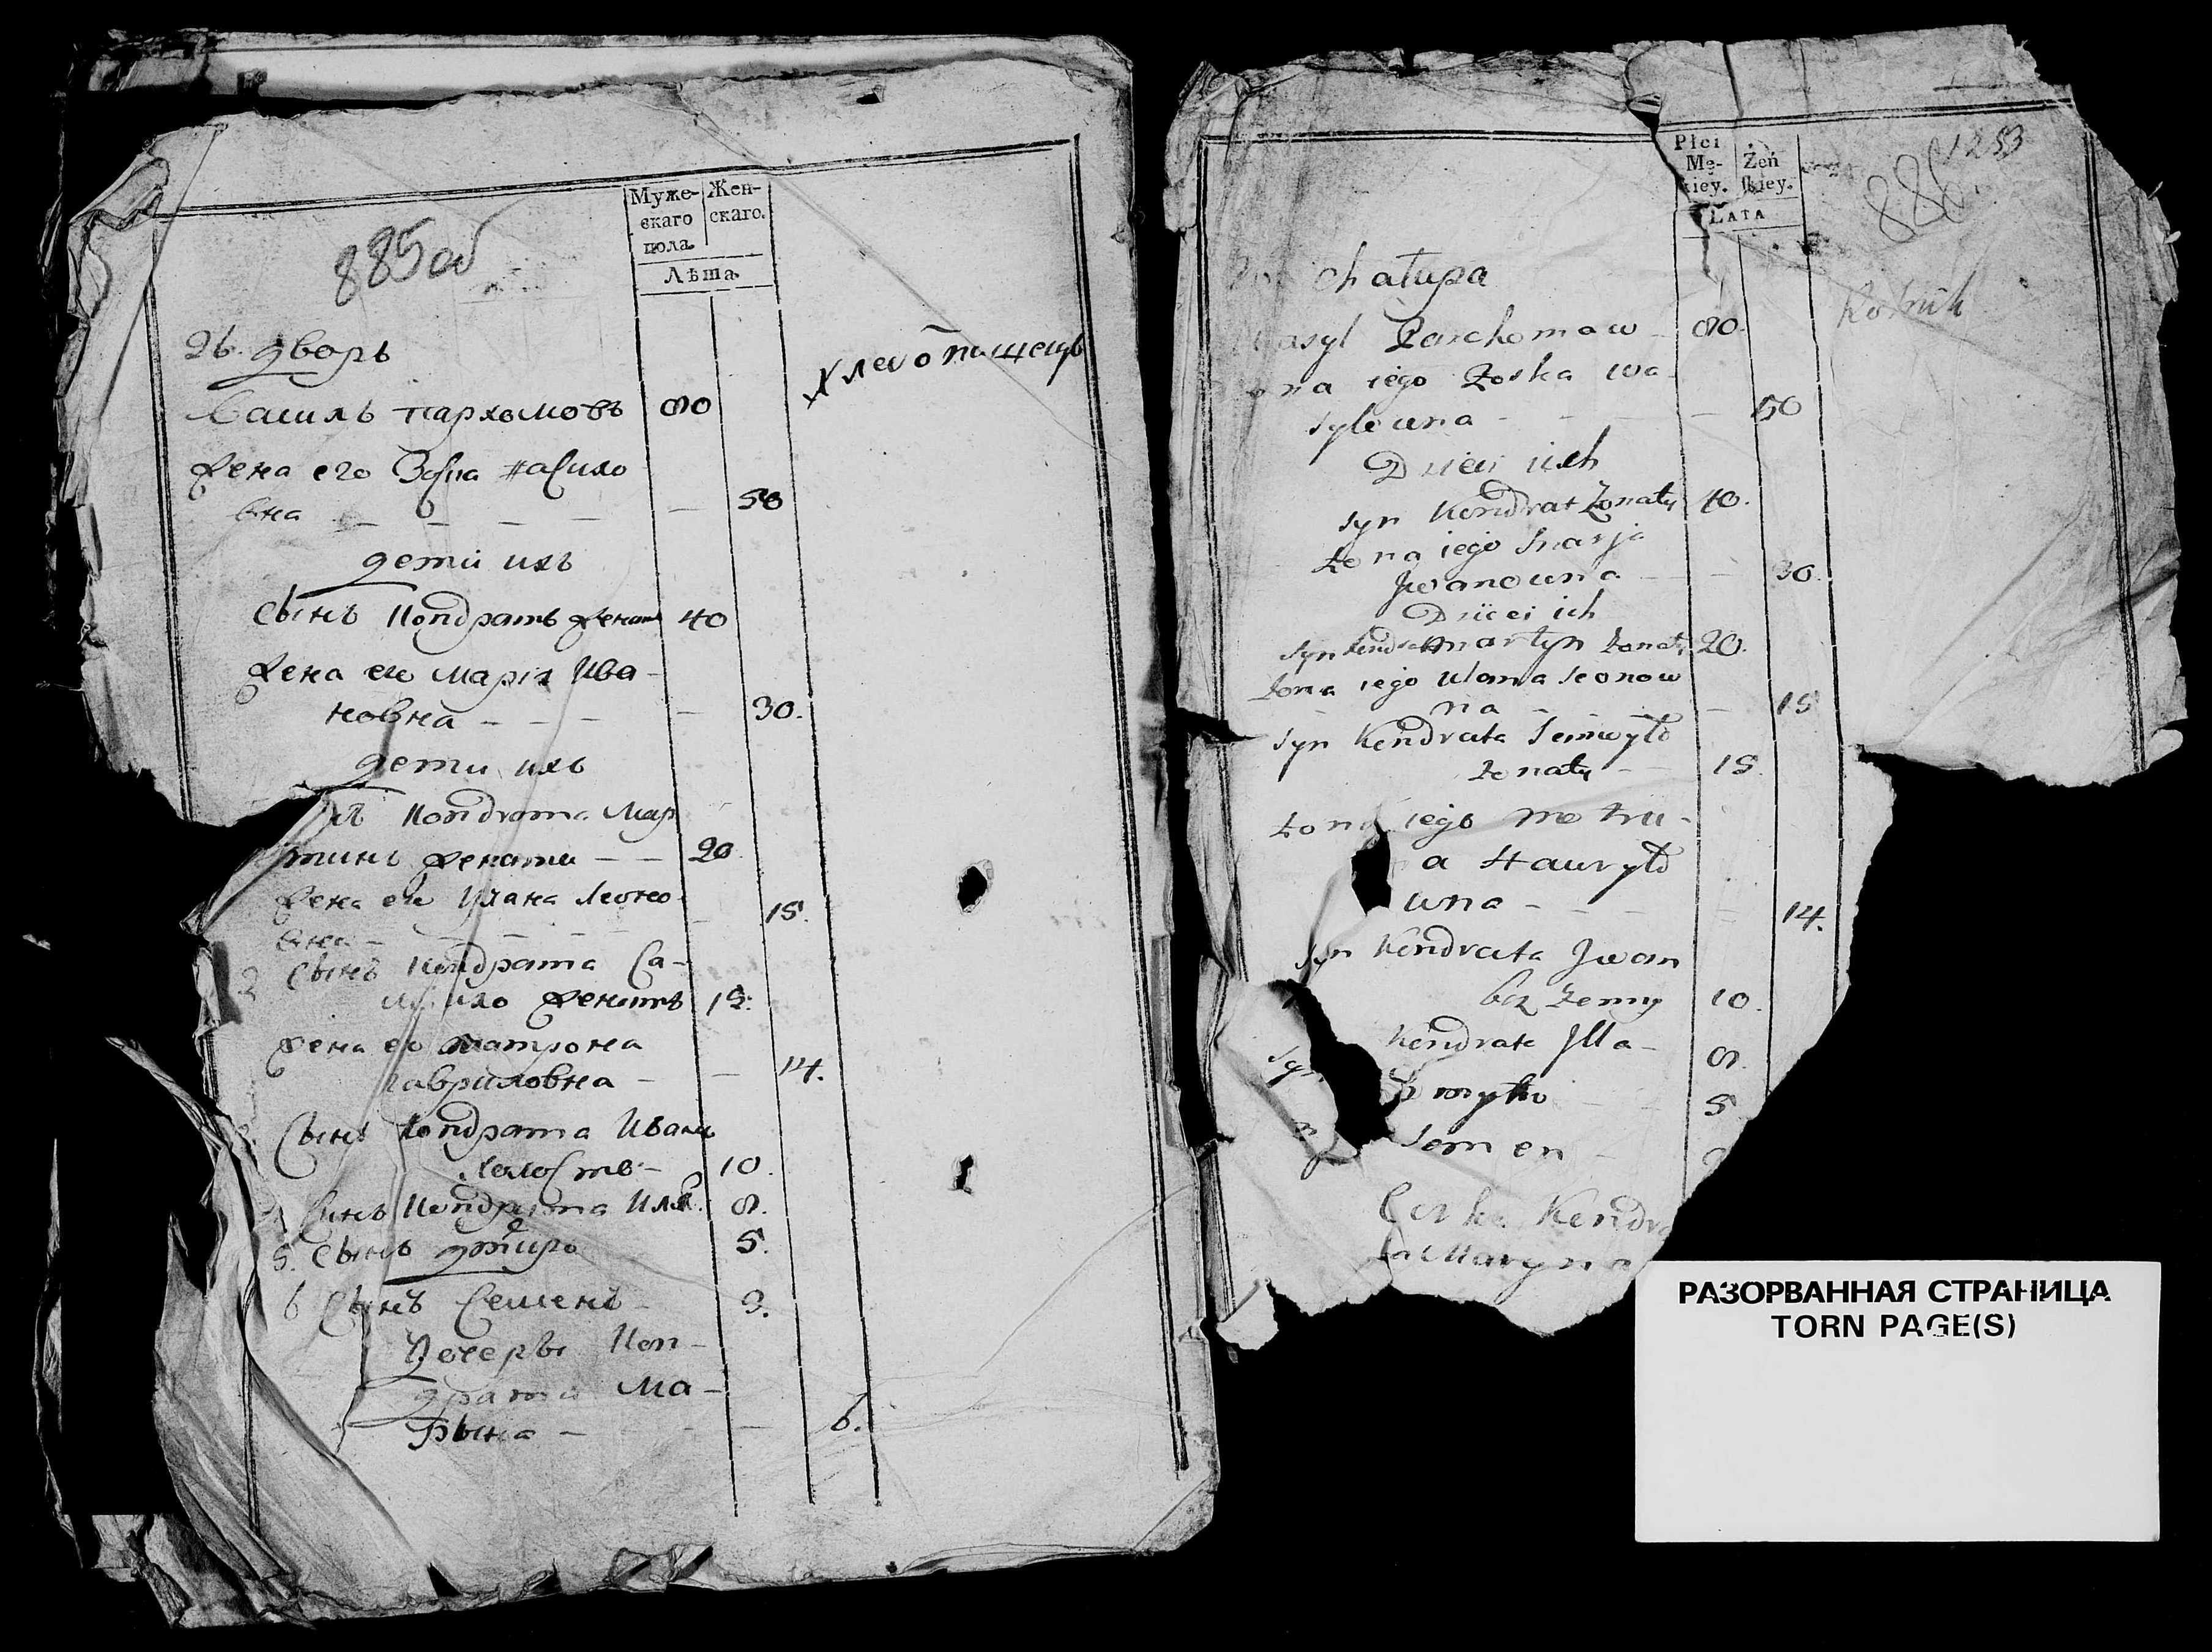 885 об
Муже-
скаго
пола.
Жен-
скаго.
Лѣта.
дворъ
Хлебопашецъ
Василь Пархомовъ 80
Жена его Зоска Васило
вна - - - - - - 50
дети ихъ
Сынъ Кондратъ женат 40
Жена его Марія Ива-
новна - - - - 30.
дети ихъ
Кондрата Мар
тинъ женати - - 20
Жена его Улана Леоно
вна - - - - - 15.
2 Сынъ Кондрата Са-
мойло женатъ 15.
Жена ео Матрона
Гавриловна - - 14.
Сынъ Кондрата Иванъ
холостъ - 10.
Сынъ Кондрата Илья. 8.
5. Сынъ дмитро 5.
6 Сынъ Семенъ - 3.
Дочерь Кон-
драта Ма-
рына - - - 6.
Płci
Mę-
kiey.
Żeń
skiey.
Lata
1253
886.
Rolnik
Chałupa
Wasyl Parchomow - 80.
Żona iego Zoska Wa-
sylewna - - - - 50
Dzieci ich
syn Kondrat Żonaty 40.
Żona iego Marja
Jwanowna - - 30.
Dzieci ich
Syn Kondrata Martyn Żonaty 20.
Żona iego Ulana Leonow
na - - - - 15
Syn Kendrata Samoyło
Żonaty - - 15.
Żona iego Motru-
a Hawryło
wna - - - - 14.
Syn Kendrata Jwan
bez Żenny 10.
Kendrata Jlla - 8.
Dmytro - - 5
Semen -
Corka Kendra
ta Maryna
РАЗОРВАННАЯ СТРАНИЦА
TORN PAGE(S)